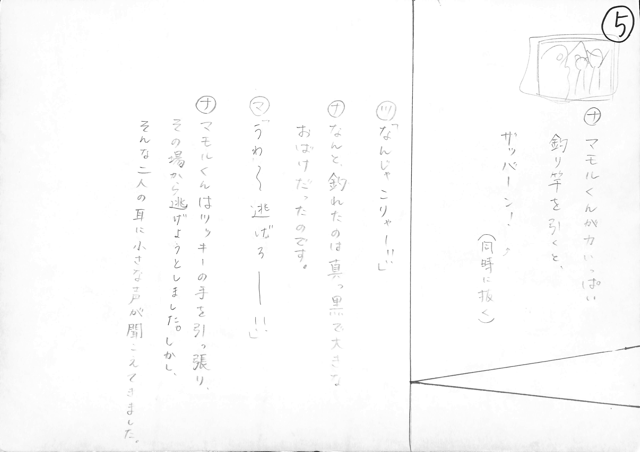 ⑤
㋤ マモルくんが力いっぱい
釣り竿を引くと、
ザッバーン!
(同時に抜く)
㋡「なんじゃこりゃー!!」
㋤ なんと、釣れたのは真っ黒で大きな
おばけだったのです。
㋮「うわ〜逃げろ――!!」
㋤ マモルくんはツッキーの手を引っ張り、
その場から逃げようとしました。しかし、
そんな二人の耳に小さな声が聞こえてきました。